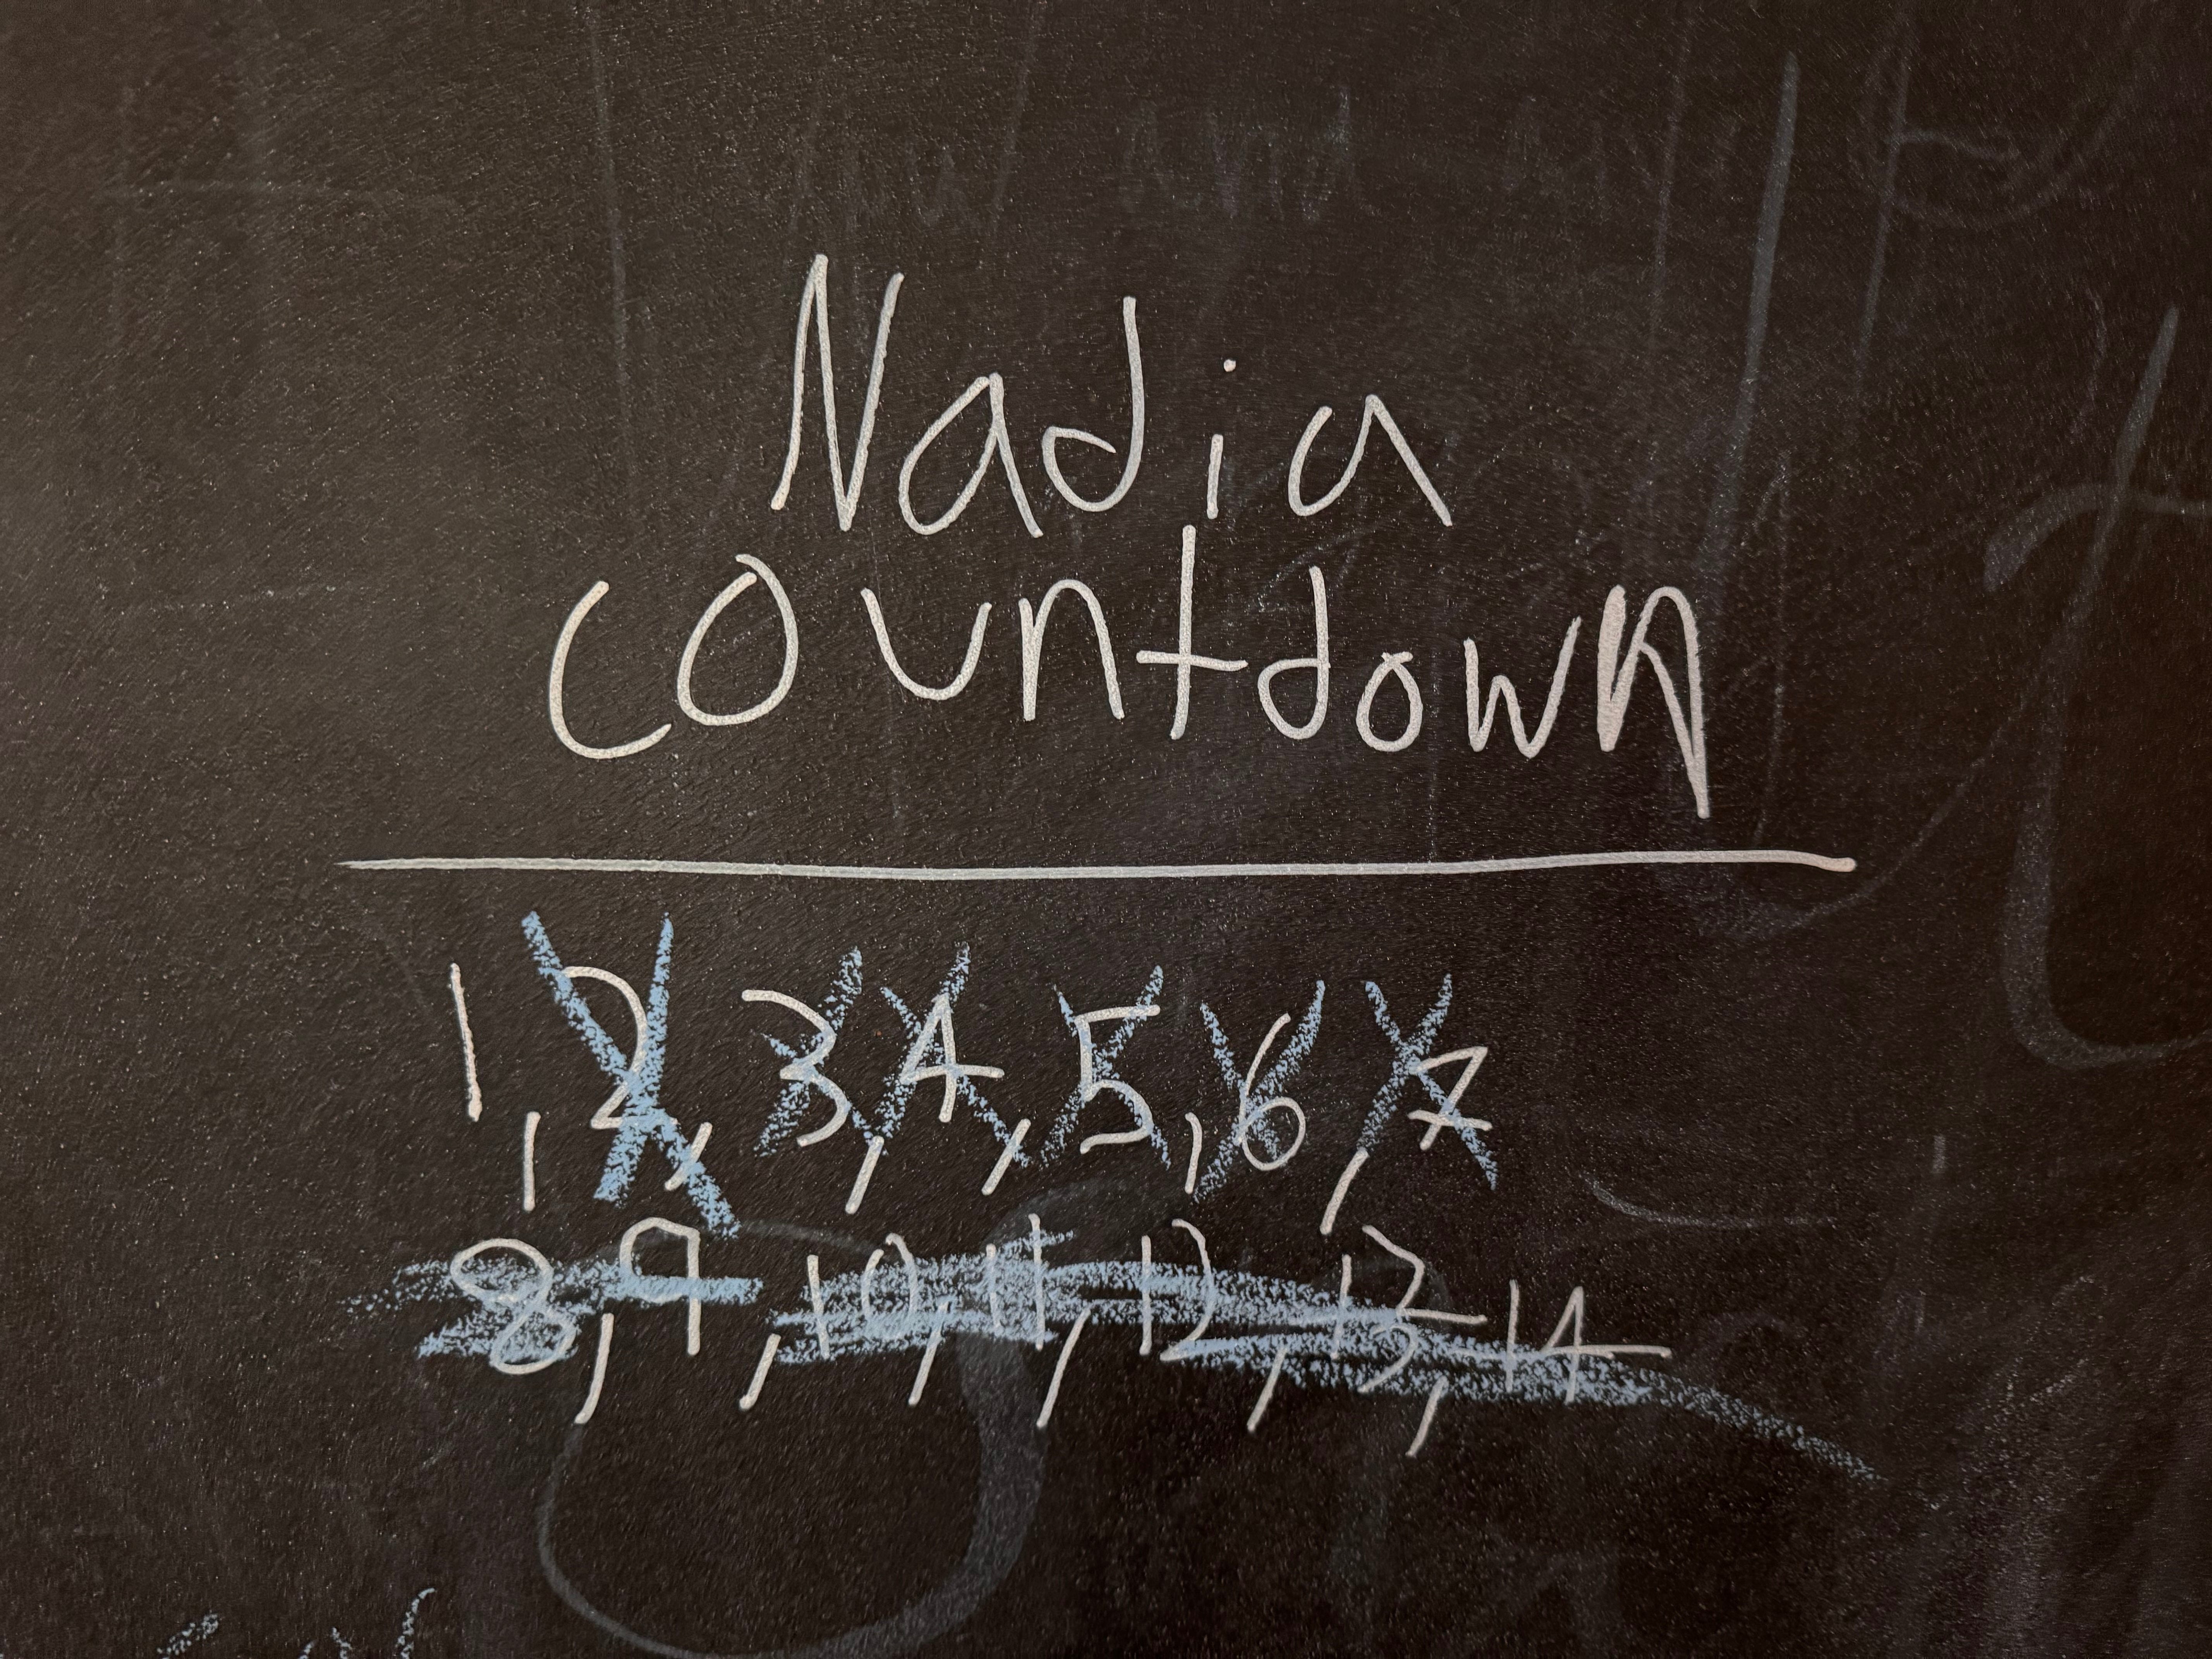 Nadia
countdown
1, 2, 3, 4, 5, 6, 7
8, 9, 10, 11, 12, 13, 14